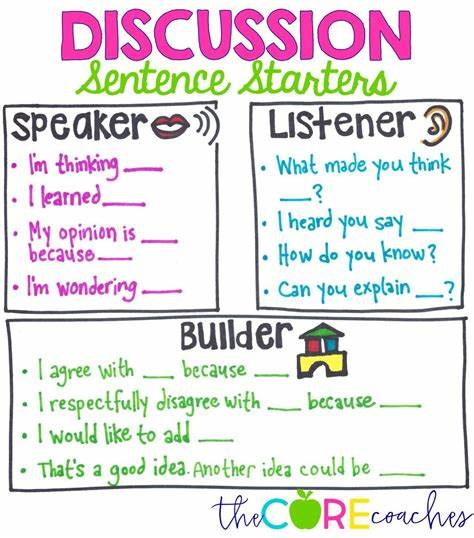 DISCUSSION
Sentence Starters
Speaker
• I'm thinking ___
• I learned ___
• My opinion is ___
because___
• I'm wondering ___
Listener
• What made you think
___?
• I heard you say ___
• How do you know?
• Can you explain ___?
Builder
• I agree with ___ because ___
• I respectfully disagree with ___ because___
• I would like to add ___
• That's a good idea. Another idea could be ___
the CORE coaches